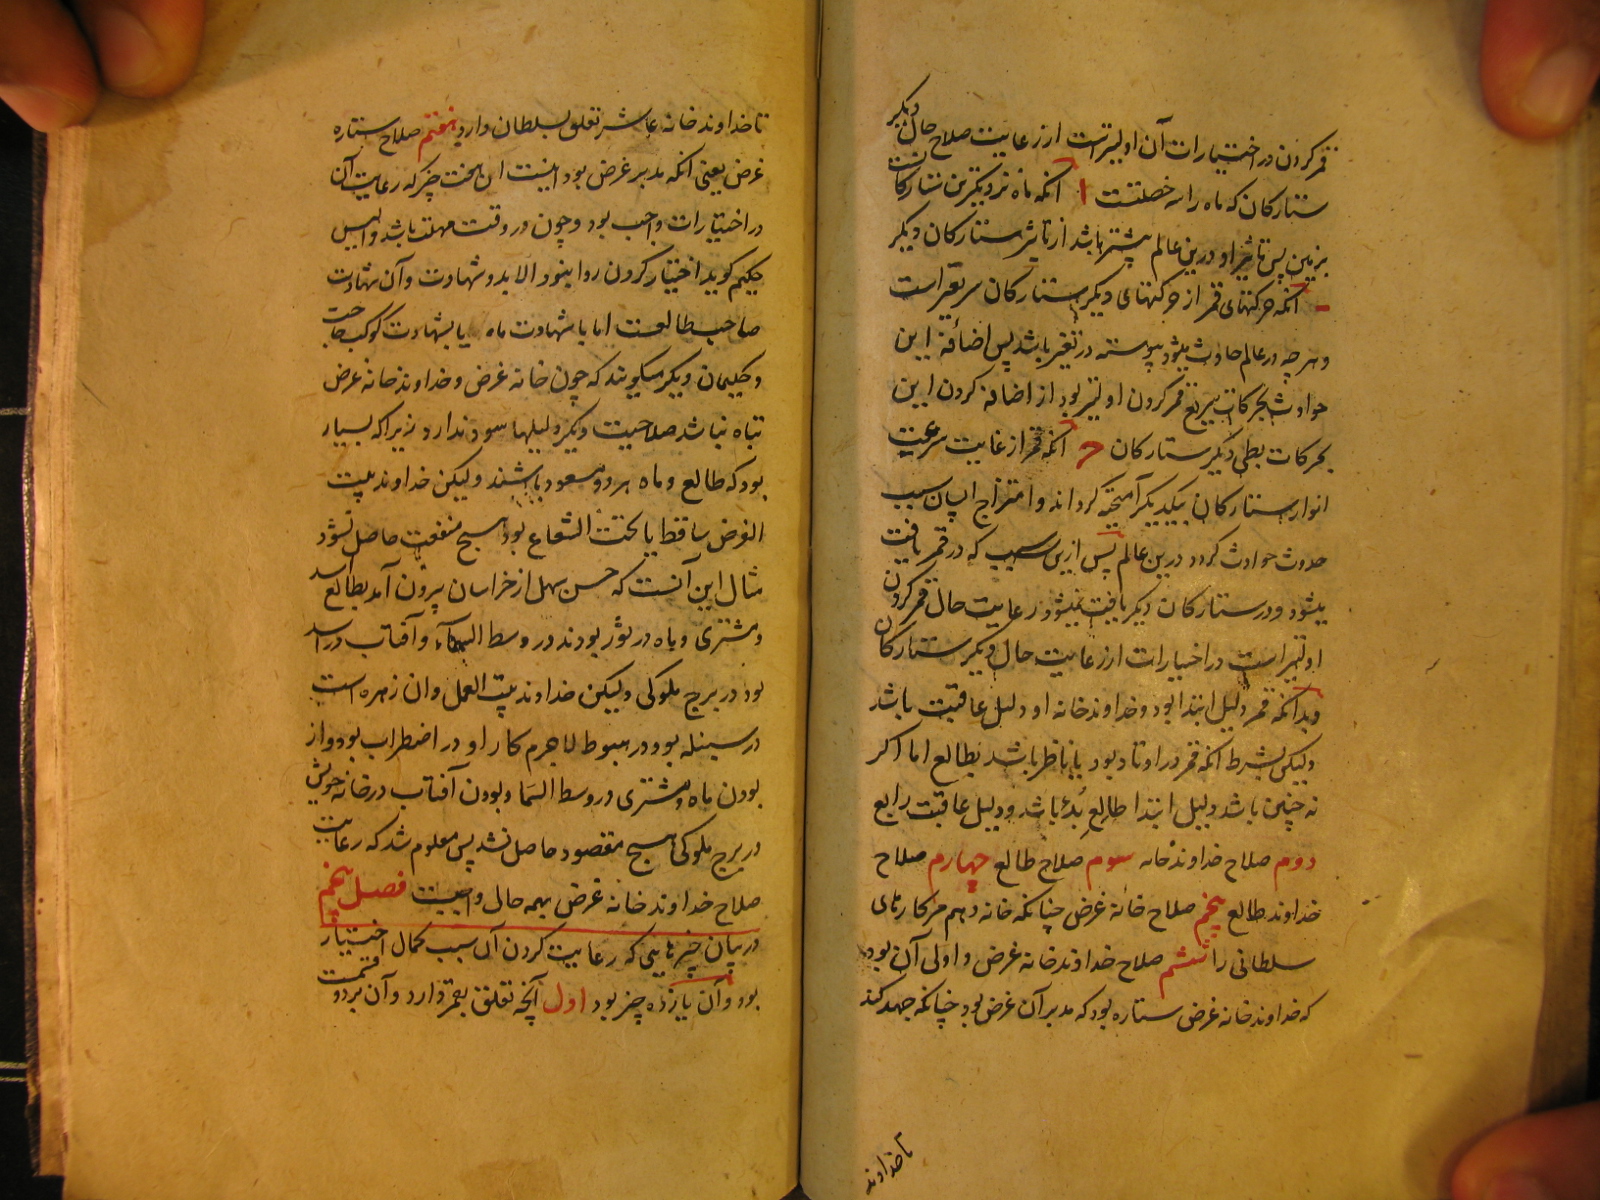 قمر کردن در اختیارات آن اولیتر است از رعایت صلاح حال دیگر
ستارکان که ماه را سه خصلتست ا آنکه ماه نزدیکترین ستارکانست
بزمین پس تاثیر او درین عالم بیشتر باشد از تاثیر ستارکان دیگر
ب آنکه حرکتهای قمر از حرکتهای دیگر ستارکان سریعتر است
و هر چه در عالم حادث میشود پیوسته در تغیر باشد پس اضافهٔ این
حوادث بحرکات سریع قمر کردن اولیتر بود از اضافه کردن این
بحرکات بطی دیگر ستارکان ح آنکه قمر از غایت سرعت
انوار ستارکان بیکدیکر آمیخته کرداند و امتزاج ایشان سبب
حدوث حوادث کردد درین عالم پس ازین سبب که در قمر یافت
میشود و در ستارکان دیکر یافت نمیشود رعایت حال قمر کردن
اولیتر است در اختیارات از رعایت حال دیکر ستارکان
و بدانکه قمر دلیل ابتدا بود و خداوند خانه او دلیل عاقبت باشد
ولیکن بشرط آنکه قمر در اوتاد بود یا ناظر باشد بطالع اما اکر
نه چنین باشد دلیل ابتدا طالع بُدئ باشد و دلیل عاقبت رابع
دوم صلاح خداوند خانه سوم صلاح طالع چهارم صلاح
خداوند طالع پنجم صلاح خانه غرض چنانکه خانه دهم مر کارهای
سلطانی را ششم صلاح خداوند خانه غرض و اولی آن بود
که خداوند خانه غرض ستاره بود که مدبر آن غرض بود چنانکه جهد کند
تا خداوند
تا خداوند خانه عاشر تعلق بسلطان دارد هفتم صلاح ستاره
غرض یعنی آنکه مدبر غرض بود اینست این هفت چیز که رعایت آن
در اختیارات واجب بود و چون در وقت مهلت باشد والیس
حکیم کوید اختیار کردن روا نبود الا بدو شهادت و آن شهادت
صاحب طالعست اما با شهادت ماه یا بشهادت کوکب حاجت
و حکیمان دیکر میکویند که چون خانه غرض و خداوند خانه غرض
تباه نباشد صلاحیت دیکر دلیلها سود ندارد زیرا که بسیار
بود که طالع و ماه هر دو مسعود باشند ولیکن خداوند بیت
الغرض ساقط یا تحت الشعاع بود هیچ منفعت حاصل نشود
مثال این آنست که حسن سهل از خراسان بیرون آمد بطالع اسد
و مشتری و ماه در ثور بودند در وسط السماء و آفتاب در اسد
بود در برج ملوکی ولیکن خداوند بیت العمل وان زهره است
در سنبله بود در هبوط لاجرم کار او در اضطراب بود و از
بودن ماه و مشتری در وسط السما و بودن آفتاب در خانه خویش
در برج ملوکی هیچ مقصود حاصل نشد پس معلوم شد که رعایت
صلاح خداوند خانه غرض بهمه حال واجبست فصل پنجم
در بیان چیزهایی که رعایت کردن آن سبب کمال اختیار
بود و آن یازده چیز بود اول آنچه تعلق بقمر دارد و آن بر دو قسمت